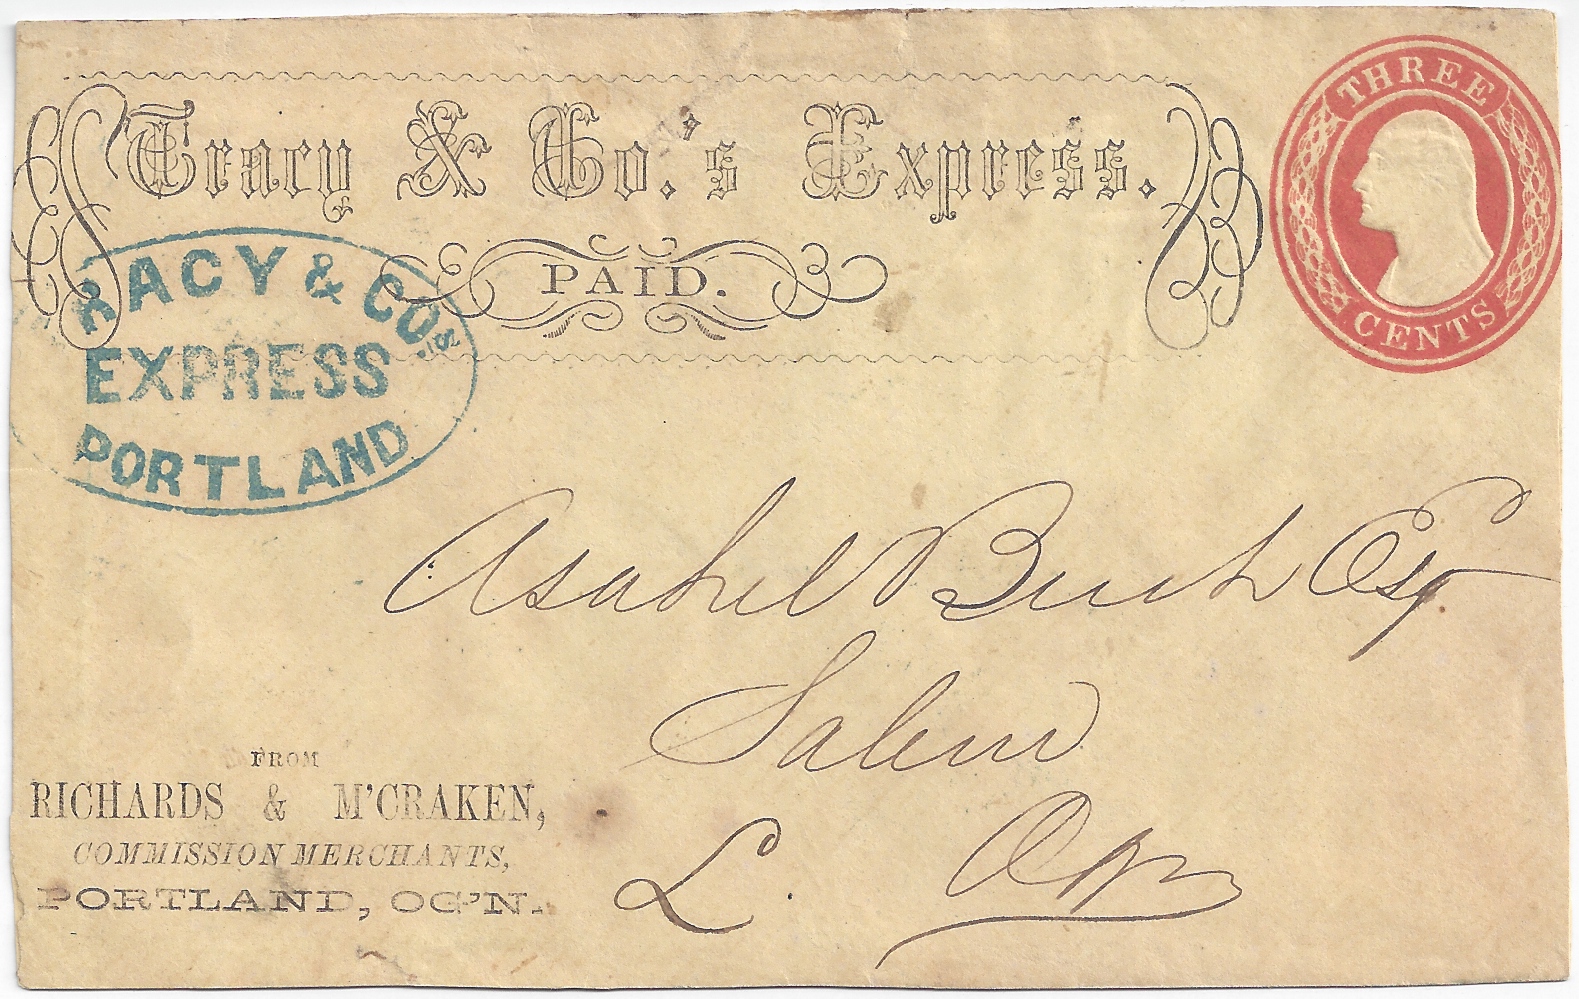 THREE
CENTS
Tracy & Co.'s Express.
PAID.
RACY & CO'S.
EXPRESS
PORTLAND
Asahel Bush Esq
Salem
Ogn
L.
FROM
RICHARDS & M'CRAKEN,
COMMISSION MERCHANTS,
PORTLAND, OG'N.